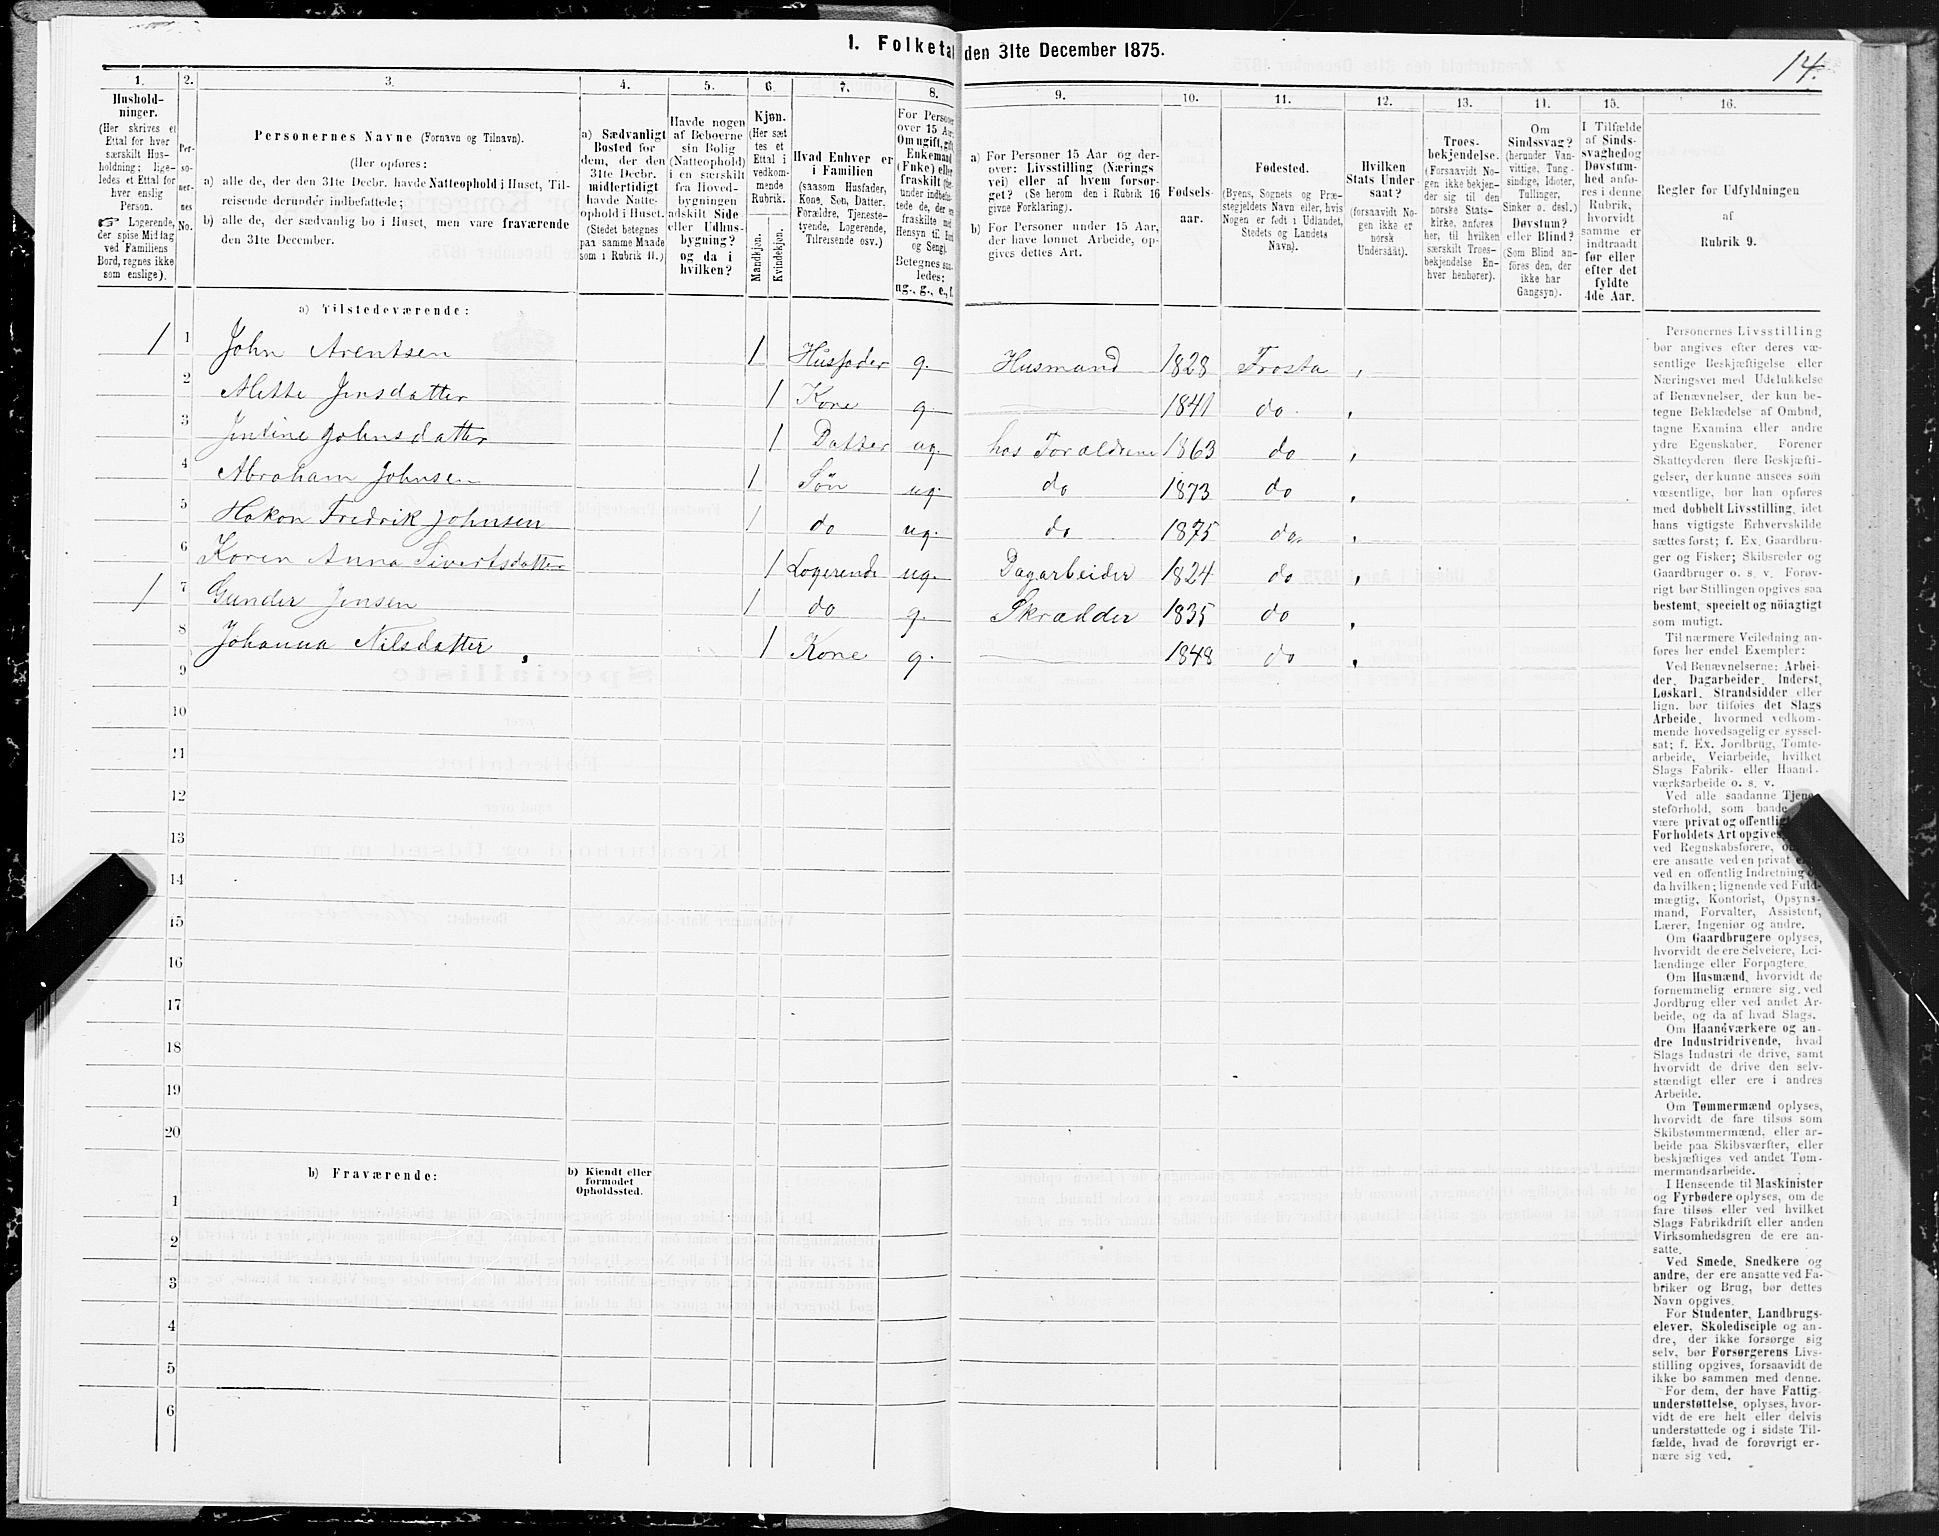 1. Folketal den 31te December 1875.
14.
1. 2. 3. 4. 5. 6. 7. 8. 9. 10. 11. 12. 13. 14. 15. 16.
Hushold-
ninger.
(Her skrives et
Ettal for hver
særskilt Hus-
holdning; lige-
ledes et Ettal for
hver enslig
Person.
☞ Logerende,
der spise Middag
ved Familiens
Bord, regnes ikke
som enslige).
Per-
so-
ner-
nes
No.
Personernes Navne (Fornavn og Tilnavn).
(Her opføres:
a) alle de, der den 31te Decbr. havde Natteophold i Huset, Til-
reisende derunder indbefattede;
b) alle de, der sædvanlig bo i Huset, men vare fraværende
den 31te December.
a) Sædvanligt
Bosted for
dem, der den
31te Decbr.
midlertidigt
havde Natte-
ophold i Huset.
(Stedet betegnes
paa samme Maade
som i Rubrik 11.)
Havde nogen
af Beboerne
sin Bolig
(Natteophold)
i en særskilt
fra Hoved-
bygningen
adskilt Side
eller Udhus-
bygning?
og da i
hvilken?
Kjøn.
(Her sæt
tes et
Ettal i
vedkom-
mende
Rubrik.
Mandkjøn.
Kvindekjøn.
Hvad Enhver er
i Familien
(saasom Husfader,
Kone, Søn, Datter,
Forældre, Tjeneste-
tyende, Logerende,
Tilreisende osv.)
For Personer
over 15 Aar:
Om ugift, gift,
Enkemand
(Enke) eller
fraskilt
ug., g., e., f.
a) For Personer 15 Aar og der-
over: Livsstilling (Nærings
vei) eller af hvem forsør-
get? (Se herom den i Rubrik 16
givne Forklaring).
b) For Personer under 15 Aar,
der have lønnet Arbeide, op-
gives dettes Art.
Fødsels-
aar.
Fødested.
(Byens, Sognets og Præ-
stegjeldets Navn eller, hvis
Nogen er født i Udlandet,
Stedets og Landets
Navn).
Hvilken
Stats Under-
saat?
(forsaavidt No-
gen ikke er
norsk
Undersåt).
Troes-
bekjendelse.
(Forsaavidt No-
gen ikke bekjen-
der sig til den
norske Stats-
kirke, anføres
her, til hvilken
særskilt Troes-
bekjendelse En-
hver henhører).
Om
Sindssvag?
(herunder Van-
vittige, Tung-
sindige, Idioter,
Tullinger,
Sinker o. desl.)
Døvstum?
eller Blind?
(Som Blind an-
føres den, der
ikke har
Gangsyn).
I Tilfælde
af Sinds-
svaghed og
Døvstum-
hed anfø-
res i denne
Rubrik,
hvorvidt
samme er
indtraadt
før eller
efter det
fyldte
4de Aar.
Regler for Udfyldningen
af
Rubrik 9.
a) Tilstedeværende:
1 1 John Arentsen 1 Husfader g. Husmand 1828 Frosta
2 Mette Jensdatter 1 Kone g. 1841 do
3 Jentine Johnsdatter 1 Datter ug. hos Forældrene 1863 do
4 Abraham Johnsen 1 Søn ug. do 1873 do
5 Hakon Fredrik Johnsen 1 do ug. do 1875 do
6 Karen Anna Sivertsdatter 1 Logerende ug. Dagarbeider 1824 do
1 7 Gunder Jensen 1 do g. Skrædder 1835 do
8 Johanna Nilsdatter 1 Kone g. 1848 do
9
10
11
12
13
14
15
16
17
18
19
20
b) Fraværende:
b) Kjendt eller
formodet
Opholdssted.
1
2
3
4
5
6
Personernes Livsstilling
bør angives efter deres væ-
sentlige Beskjæftigelse eller
Næringsvei med Udelukkelse
af Benævnelser, der kun be-
tegne Beklædelse af Ombud,
tagne Examina eller andre
ydre Egenskaber. Forener
Skatteyderen flere Beskjæfti-
gelser, der kunne ansees som
væsentlige, bør han opføres
med dobbelt Livsstilling, idet
hans vigtigste Erhvervskilde
sættes først; f. Ex. Gaardbru-
ger og Fisker; Skibsreder og
Gaardbruger o. s. v. Forøv-
rigt bør Stillingen opgives saa
bestemt, specielt og nøiagtigt
som muligt.
Til nærmere Veiledning an-
føres her endel Exempler:
Ved Benævnelserne: Arbei-
der, Dagarbeider, Inderst,
Løskarl, Strandsidder eller
lign. bør tilføies det Slags
Arbeide, hvormed vedkom-
mende hovedsagelig er syssel-
sat; f. Ex. Jordbrug, Tomte-
arbeide, Veiarbeide, hvilket
Slags Fabrik- eller Haand-
værksarbeide o. s. v.
Ved alle saadanne Tjene-
steforhold, som baade
være privat og offentligt
Forholdets Art opgives,
ved Regnskabsførere,
ere ansatte ved en privat
ved en offentlig Indretning
da hvilken; lignende ved Fuld-
mægtig, Kontorist, Opsyns-
mand, Forvalter, Assistent,
Lærer, Ingeniør og andre.
Om Gaardbrugere oplyses,
hvorvidt de ere Selveiere, Lei-
lændinge eller Forpagtere.
Om Husmænd, hvorvidt de
fornemmelig ernære sig ved
Jordbrug eller ved andet Ar-
beide, og da af hvad Slags.
Om Haandværkere og an-
dre Industridrivende, hvad
Slags Industri de drive, samt
hvorvidt de drive den selv-
stændigt eller ere i andres
Arbeide.
Om Tømmermænd oplyses,
hvorvidt de fare tilsøs som
Skibstømmermænd, eller ar-
beide paa Skibsværfter, eller
beskjæftiges ved andet Tøm-
mermandsarbeide.
I Henseende til Maskinister
og Fyrbødere oplyses, om de
fare tilsøs eller ved hvilket
Slags Fabrikdrift eller anden
Virksomhedsgren de ere an-
satte.
Ved Smede, Snedkere og
andre, der ere ansatte ved Fa-
briker og Brug, bør dettes
Navn opgives.
For Studenter, Landbrugs-
elever, Skoledisciple og an-
dre, der ikke forsørge sig
selv, bør Forsørgerens Livs-
stilling opgives, forsaavidt de
ikke bo sammen med denne.
For dem, der have Fattig-
understøttelse, oplyses, hvor-
vidt de ere helt eller delvis
understøttede og i sidste Til-
fælde, hvad de forøvrigt er-
nære sig ved.